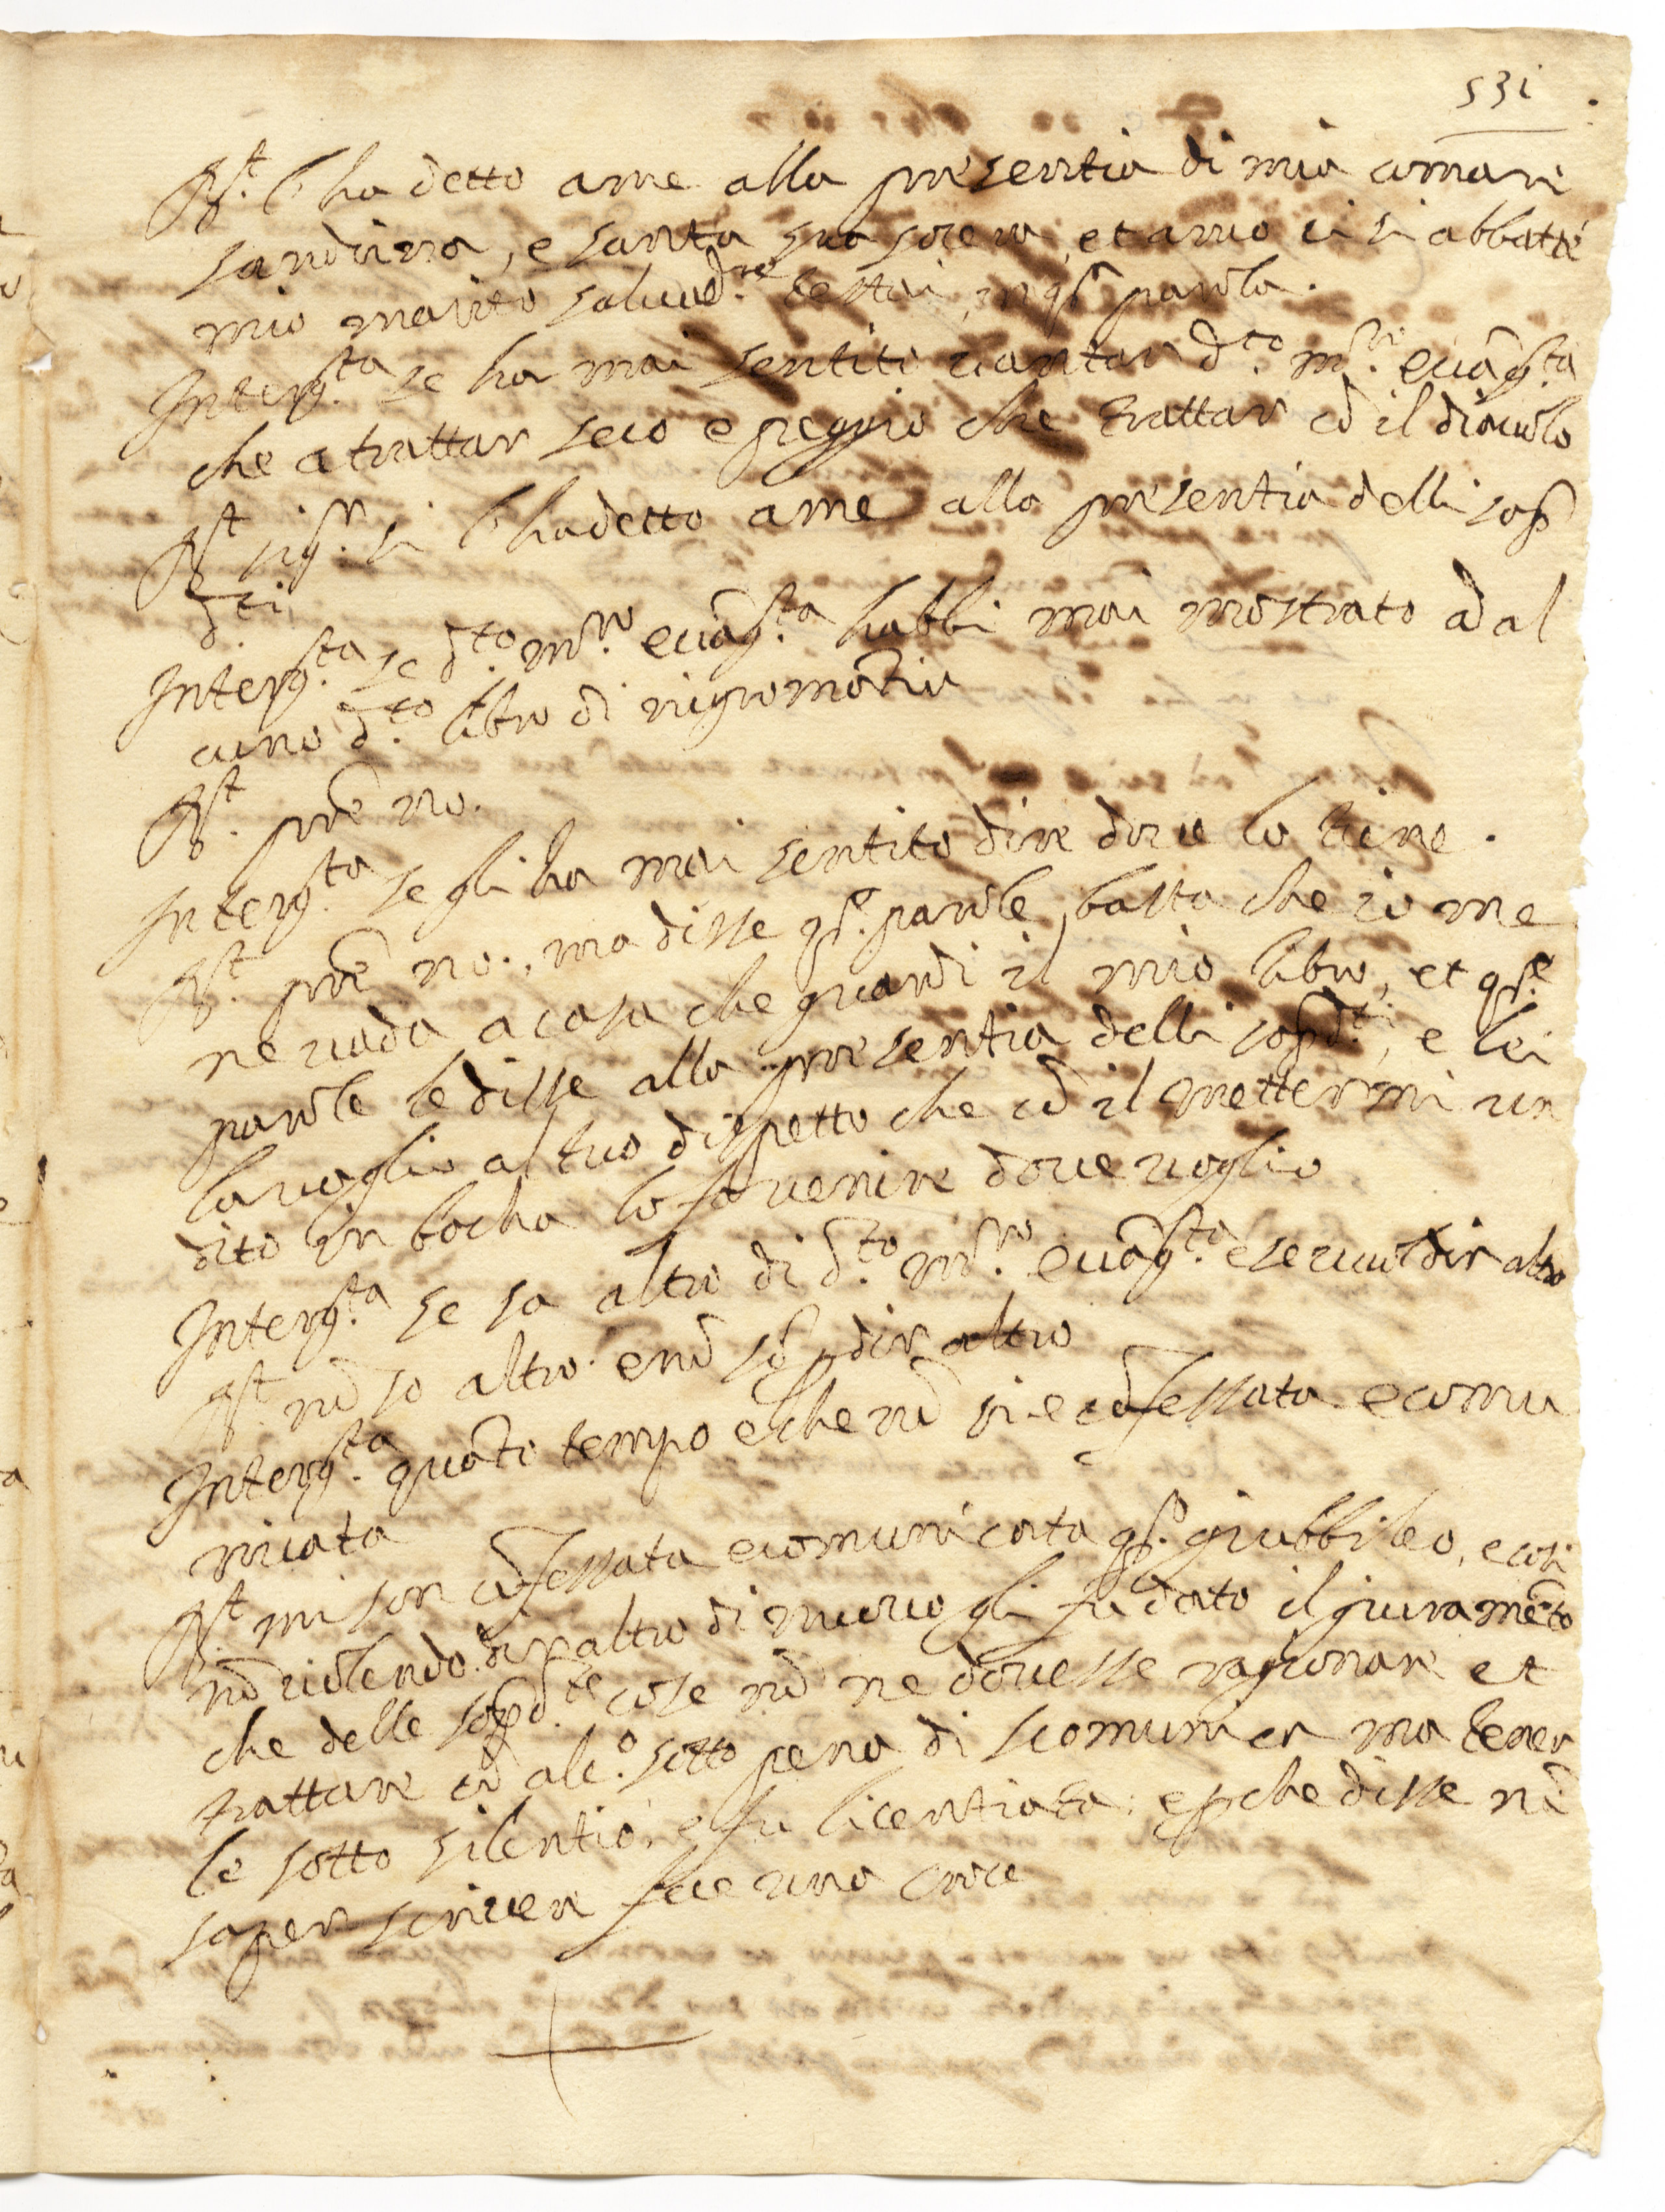 531
Rst. l'ha detto a me alla presentia di mia comare
e santa sua socera, et anco ci si abbatté
mio marito salvad.re in qsᵃ parola.
Interg.ta se ha mai sentito vantar d.to m.ro evāg.ta
che a trattar seco e peggio che trattar cō il diavolo
Rst sig.r si l'ha detto a me alla presentia delli sop
d.ti
Interg.ta se d.to m.ro evāg.ta habbi mai mostrato ad al
cuno d.to libro di nigromātia
Rst. prē no.
Interg.ta se gli ha mai sentito dire dove lo tiene.
Rst. prē no., ma disse qse. parole, basta che io me
ne vada a casa che guardi il mio libro, et qse.
parole le disse alla presentia delli sopd.ti, e lei
la voglio al tuo dispetto che cō il mettermi un
dito in bocha lo fo venire dove voglio
Interg.ta se sa altro di d.to m.ro evāg.ta e se vuol dir altro
Rst. nō so altro e nō so dir altro
Interg.ta quāto tempo è che nō si è cōfessata e comu
nicata
Rst mi son cōfessata e comunicata qso. giubbileo, e cosi
nō volendo dir altro di nuovo gli fu dato il giuramēto
che delle sopd.te cose nō ne dovesse ragionare et
trattare cō alc.o sotto pena di scomunica ma tener
le sotto silentio, e fu licentiata, e pche disse nō
saper scrivere fece una croce
+